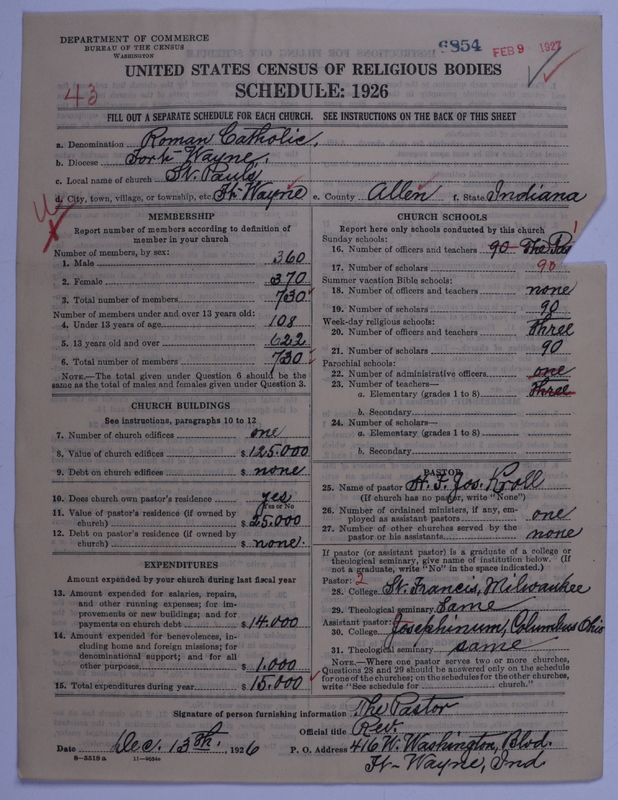 DEPARTMENT OF COMMERCE
BUREAU OF THE CENSUS
WASHINGTON
6854
FEB 9 1927
UNITED STATES CENSUS OF RELIGIOUS BODIES
SCHEDULE: 1926
43
FILL OUT A SEPARATE SCHEDULE FOR EACH CHURCH. SEE INSTRUCTIONS ON THE BACK OF THIS SHEET
a. Denomination Roman Catholic.
b. Diocese Fort-Wayne.
c. Local name of church St. Pauls
d. City, town, village, or township, etc. Ft-Wayne e. County Allen f. State Indiana
MEMBERSHIP
Report number of members according to definition of
member in your church
Number of members, by sex:
1. Male 360
2. Female 370
3. Total number of members 730
Number of members under and over 13 years old:
4. Under 13 years of age 108
5. 13 years old and over 622
6. Total number of members 730
NOTE.—The total given under Question 6 should be the
same as the total of males and females given under Question 3.
CHURCH BUILDINGS
See instructions, paragraphs 10 to 12
7. Number of church edifices one
8. Value of church edifices $125.000
9. Debt on church edifices $ none
10. Does church own pastor's residence yes
Yes or No
11. Value of pastor's residence (if owned by
church) $25.000
12. Debt on pastor's residence (if owned by
church) $ none.
EXPENDITURES
Amount expended by your church during last fiscal year
13. Amount expended for salaries, repairs,
and other running expenses; for im-
provements or new buildings; and for
payments on church debt $14.000
14. Amount expended for benevolences, in-
cluding home and foreign missions; for
denominational support; and for all
other purposes $1.000
15. Total expenditures during year $15.000
CHURCH SCHOOLS
Report here only schools conducted by this church
Sunday schools:
16. Number of officers and teachers 90 The Pas 1
17. Number of scholars 90
Summer vacation Bible schools:
18. Number of officers and teachers none
19. Number of scholars 90
Week-day religious schools:
20. Number of officers and teachers three
21. Number of scholars 90
Parochial schools:
22. Number of administrative officers one
23. Number of teachers—
a. Elementary (grades 1 to 8) three
b. Secondary
24. Number of scholars—
a. Elementary (grades 1 to 8)
b. Secondary
PASTOR
25. Name of pastor H. F. Jos. Kroll
(If church has no pastor, write "None")
26. Number of ordained ministers, if any, em-
ployed as assistant pastors one
27. Number of other churches served by the
pastor or his assistants none
If pastor (or assistant pastor) is a graduate of a college or
theological seminary, give name of institution below. (If
not a graduate, write "No" in the space indicated.)
Pastor: 2
28. College St. Francis, Milwaukee
29. Theological seminary Same
Assistant pastor:
30. College Josephinum, Columbus Ohio
31. Theological seminary same
NOTE.—Where one pastor serves two or more churches,
Questions 28 and 29 should be answered only on the schedule
for one of the churches; on the schedules for the other churches,
write "See schedule for church."
Signature of person furnishing information The Pastor
Official title Rev.
Date Dec. 13th, 1926 P. O. Address 416 W. Washington, Blvd.
Ft-Wayne, Ind.
8—5518a